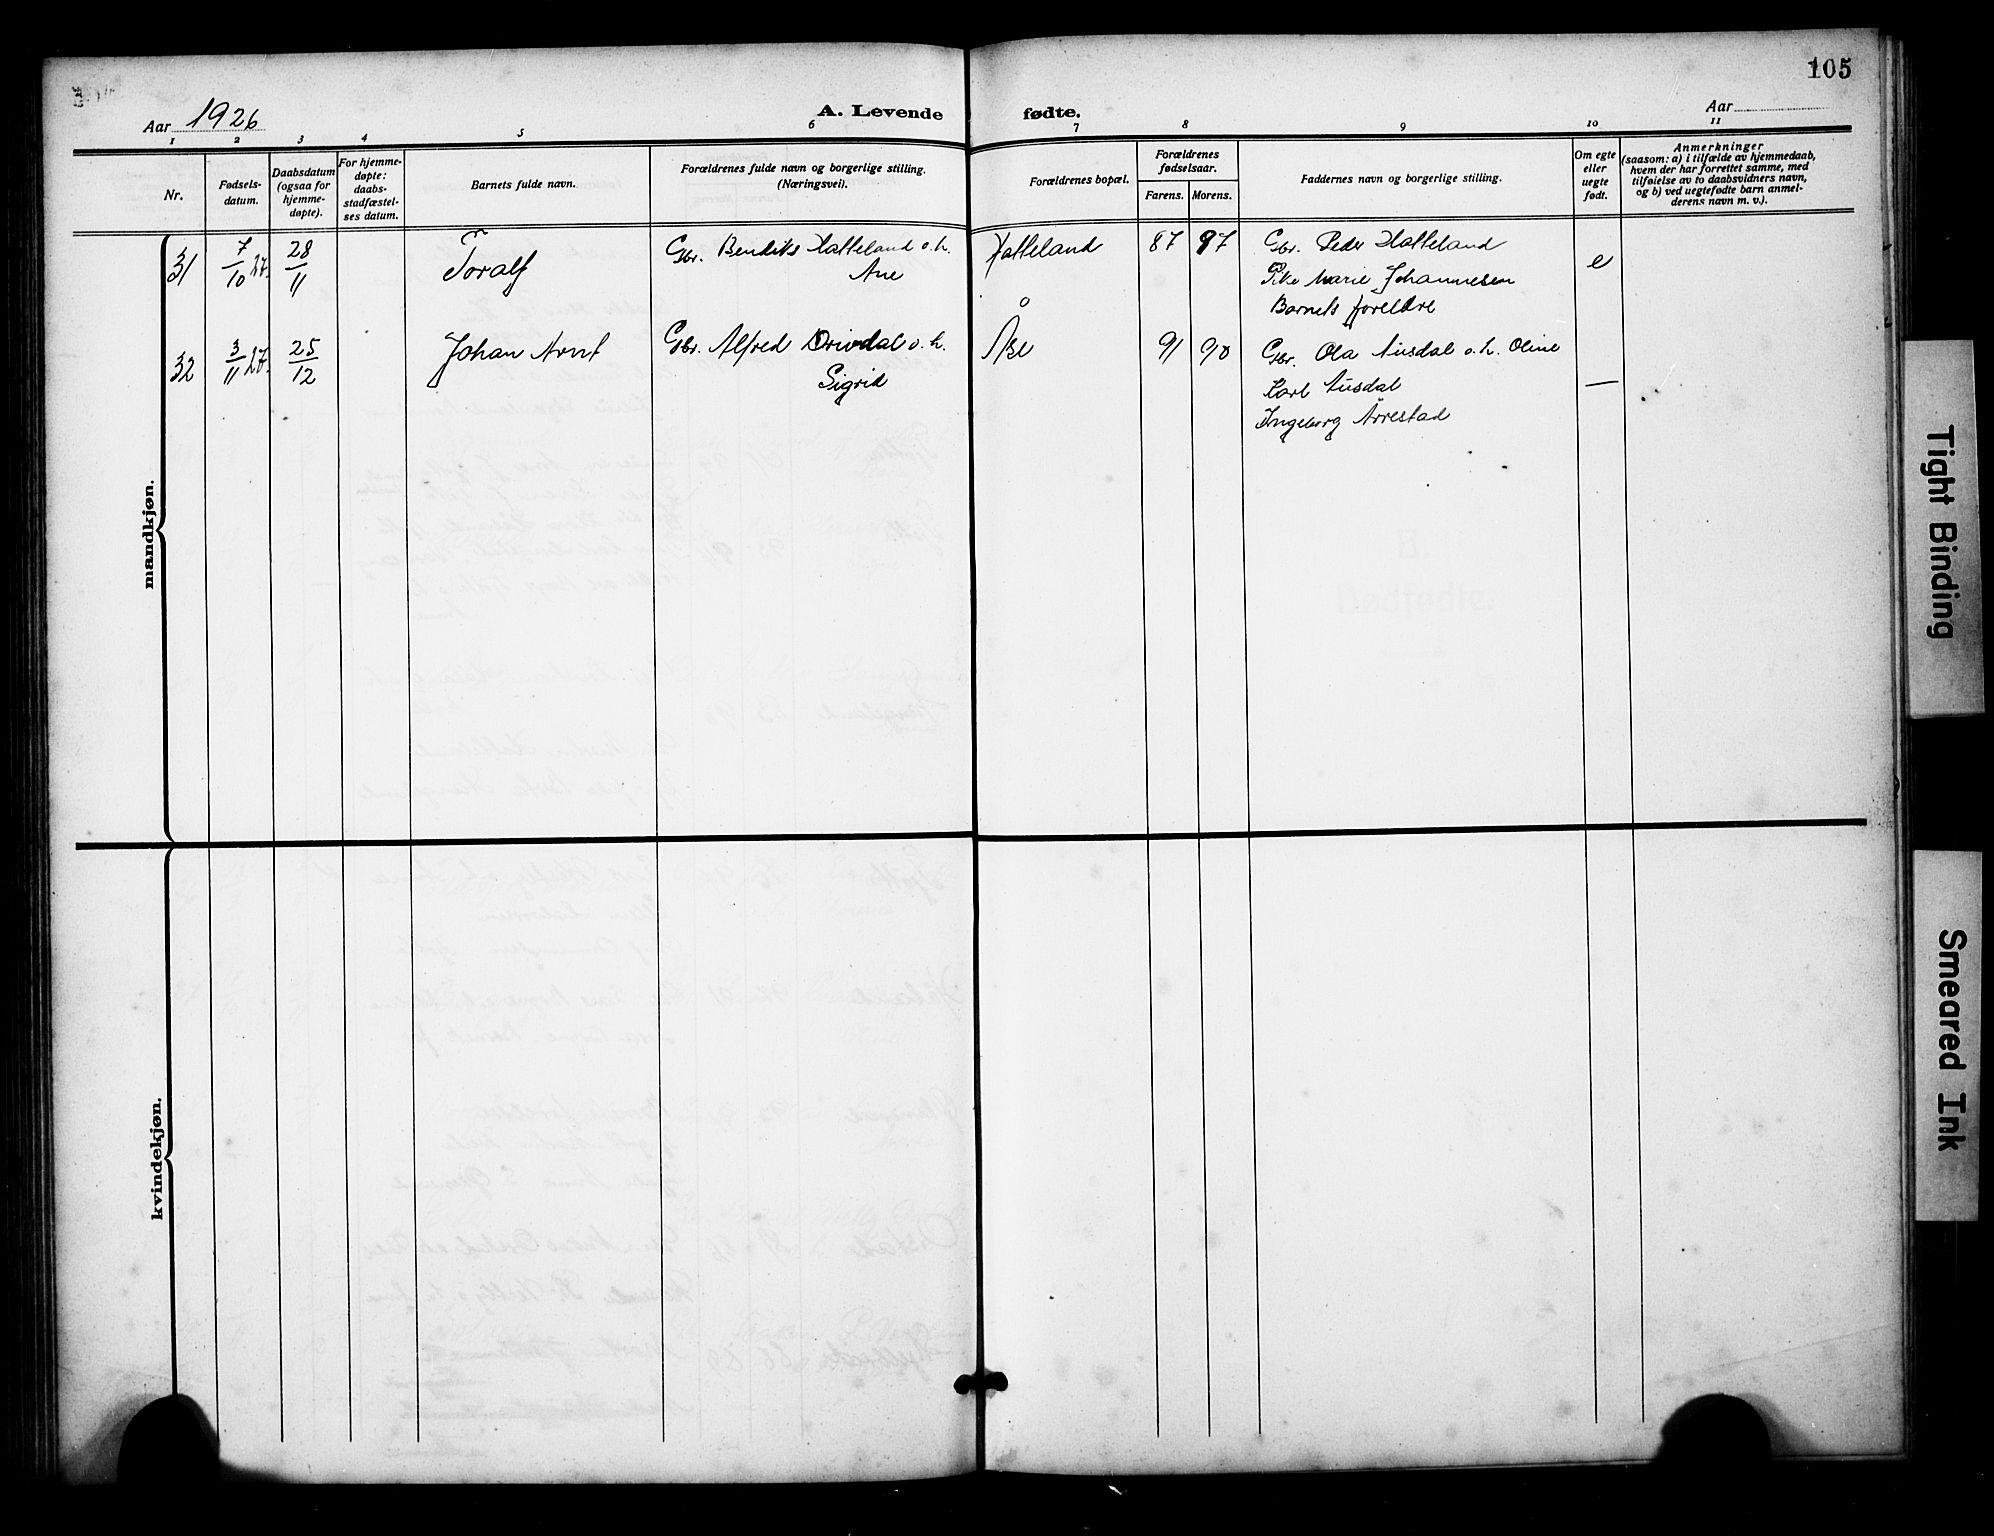 105
Aar 1926
A. Levende fødte.
Aar
1 2 3 4 5 6 7 8 9 10 11
Nr.
Fødsels-
datum.
Daabsdatum
(ogsaa for
hjemme-
døpte).
For hjemme-
døpte:
daabs-
stadfæstel-
ses datum.
Barnets fulde navn.
Forældrenes fulde navn og borgerlige stilling.
(Næringsvei).
Forældrenes bopæl.
Forældrenes
fødselsaar.
Farens. Morens.
Faddernes navn og borgerlige stilling.
Om egte
eller
uegte
født.
Anmerkninger
(saasom: a) i tilfælde av hjemmedaab,
hvem der har forrettet samme, med
tilføielse av to daabsvidners navn,
og b) ved uegtefødte barn anmel-
derens navn m. v.).
mandkjøn.
31 7/10 27. 28/11 Toralf Gbr. Bendiks Hatteland o. h. Hatteland 87 97 Gbr. Peder Hatteland e
Ane Pike Marie Johannesen
Barnets foreldre
32 3/11 27. 25/12 Johan Arnt Gbr. Alfred Drivdal o. h. Åse 91 90 Gbr. Ola Ausdal o. h. Oline —
Sigrid Karl Ausdal
Ingeborg Årrestad
kvindekjøn.
Tight Binding
Smeared Ink